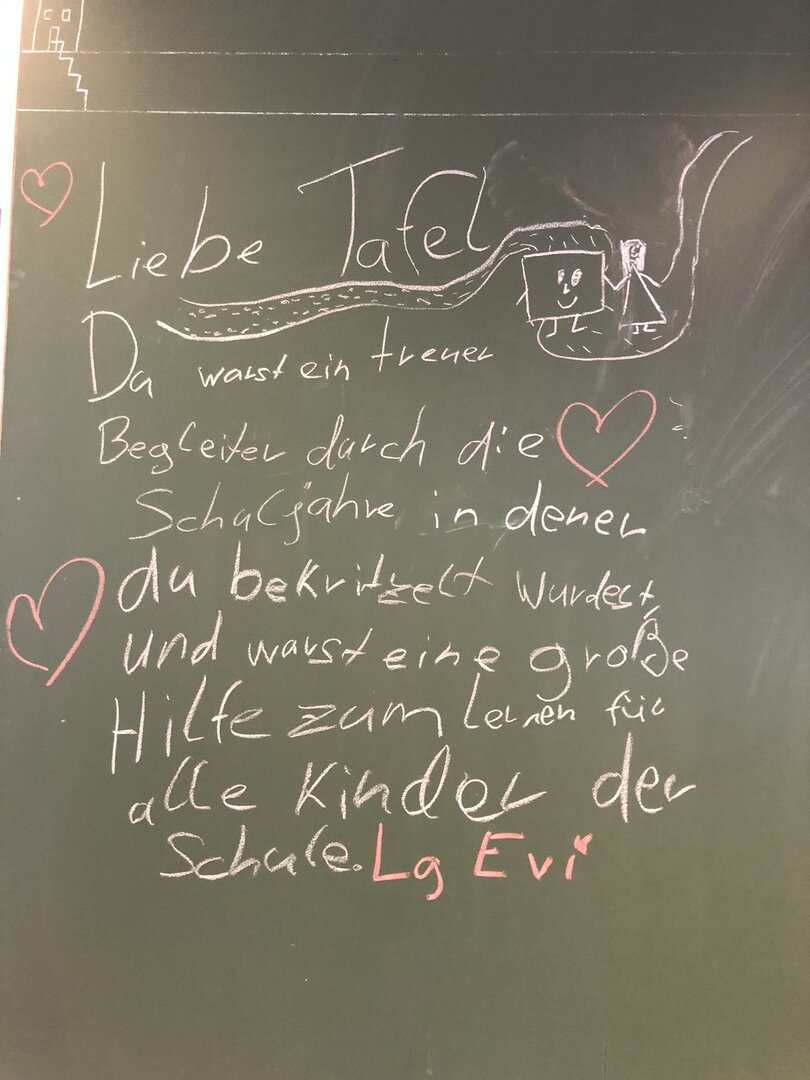 Liebe Tafel
Du warst ein treuer
Begleiter durch die
Schuljahre in denen
du bekritzelt wurdest
und warst eine große
Hilfe zum Lernen für
alle Kinder der
Schule. Lg Evi